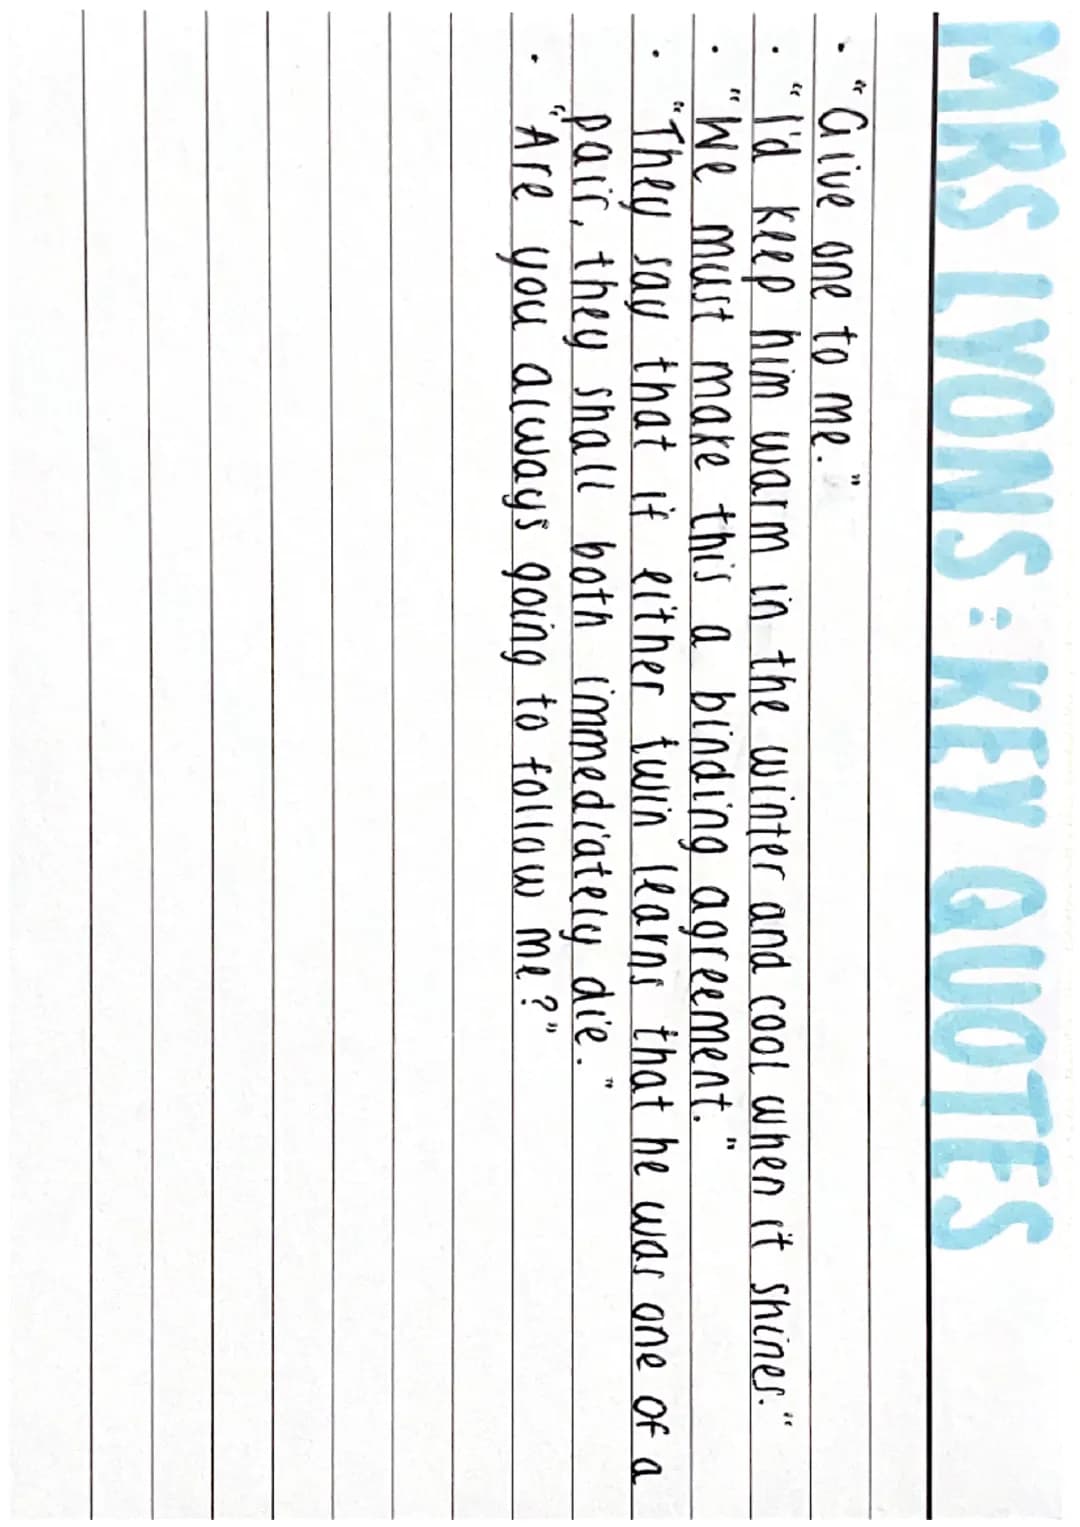 MRS LYONS: KEY QUOTES
• "Give one to me."
• "I'd keep him warm in the winter and cool when it shines."
• "We must make this a binding agreement."
• "They say that if either twin learns that he was one of a
pair, they shall both immediately die."
• "Are you always going to follow me?"